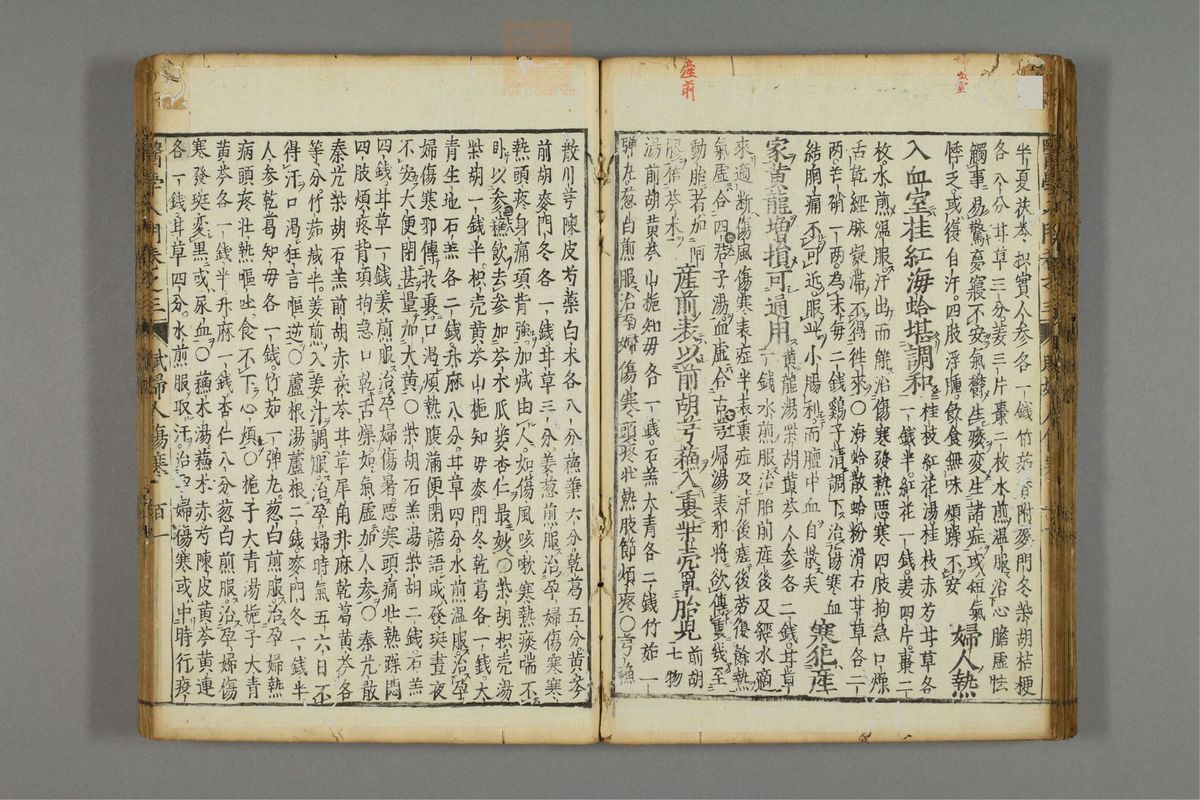 產前
半夏茯苓枳實人參各一錢竹茹香附麥門冬柴胡桔梗
各八分甘草三分姜三片棗二枚水煎溫服治心膽虛怯
觸事易驚夢寐不安氣鬱生痰變生諸症或短氣
悸乏或復自汗四肢浮腫飲食無味煩躁不安 婦人熱
入血室桂紅海蛤堪調和 桂枝紅花湯桂枝赤芍甘草各一錢半紅花一錢姜四片棗二
枚水煎溫服汗出而解治傷寒發熱惡寒四肢拘急口燥
舌乾經脉凝滯不得往來○海蛤散蛤粉滑石甘草各二
兩芒硝一兩為末每二錢鷄子清調下治傷寒血
結胸痛不可近服此小腸利而膻中血自散矣 寒犯産
家黃龍增損可通用 黃龍湯柴胡黃芩人參各二錢甘草一錢水煎服治胎前産後及經水適
來適斷傷風傷寒表症半表裏症及汗後瘥後勞復餘熱
氣虛合四君子湯血虛合古芎歸湯表和將欲傳裏或至
動胎者加阿
產前表以前胡芎蘓入裏枳壳罩胎児 前胡七物
湯前胡黃芩山梔知母各一錢石羔大青各二錢竹茹一
彈丸葱白煎服治孕婦傷寒頭疼壯熱肢節煩疼○芎蘓
散川芎陳皮芍藥白术各八分蘓葉六分乾葛五分黃芩
前胡麥門冬各一錢甘草三分姜葱煎服治孕婦傷寒寒
熱頭疼身痛項背強加减由人如傷風咳嗽寒熱痰喘不
卧以參蘓飲去參加芩木瓜婆杏仁最妙○柴胡枳壳湯
柴胡一錢半枳壳黃芩山梔知母麥門冬乾葛各一錢大
青生地石羔各二錢升麻八分甘草四分水煎溫服治孕
婦傷寒邪傳於裏口渴煩熱腹滿便閉譫語或發斑晝夜
不安大便閉甚量加大黃○柴胡石羔湯柴胡二錢石羔
四錢甘草一錢姜煎服治孕婦傷暑惡寒頭痛壯熱躁悶
四肢煩疼背項拘急口乾舌燥如氣虛加人參○秦艽散
秦艽柴胡石羔前胡赤茯苓甘草犀角升麻乾葛黃芩各
等分竹茹咸半姜煎入姜汁調服治孕婦時氣五六日不
得汗口渴狂言嘔逆○蘆根湯蘆根二錢麥門冬一錢半
人參乾葛知母各一錢竹茹一彈丸葱白煎服治孕婦熱
病頭疼壯熱嘔吐食不下心煩○梔子大青湯梔子大青
黃芩各一錢半升麻一錢杏仁八分葱白煎服治孕婦傷
寒發斑変黑或尿血○蘓木湯蘓木赤芍陳皮黃芩黃連
各一錢甘草四分水煎服取汗治孕婦傷寒或中時行疫
醫學入門卷之三 賦婦人傷寒 百一